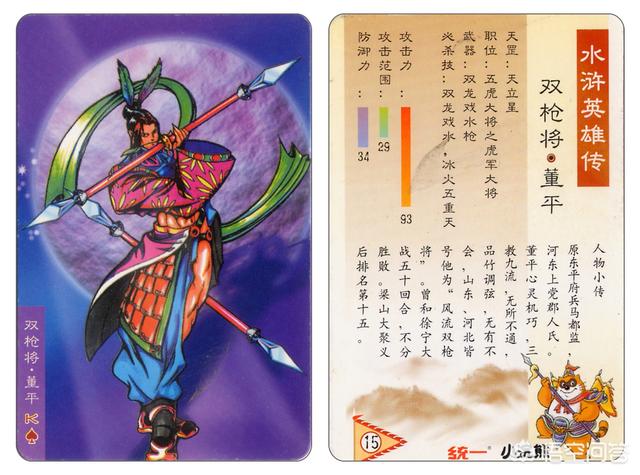 双枪将·董平
K
水浒英雄传
双枪将·董平
天罡：天立星
职位：五虎大将之虎军大将
武器：双龙戏水枪
必杀技：双龙戏水，冰火五重天
攻击力：
93
攻击范围：
29
防御力：
34
人物小传
原东平府兵马都监，
河东上党郡人氏。
董平心灵机巧，三
教九流，无所不通，
品竹调弦，无有不
会，山东、河北皆
号他为“风流双枪
将”。曾和徐宁大
战五十回合，不分
胜败。梁山大聚义
后排名第十五。
15
统一
小浣熊
悟空问答